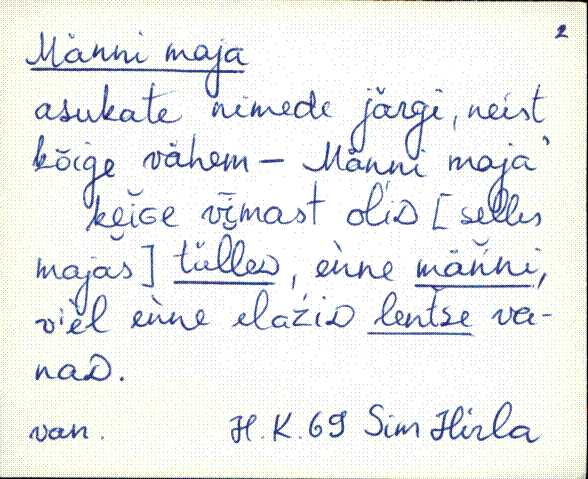 2
Männi maja
asukate nimede järgi, neist
kõige vähem – Männi maja'
keiᴅe vi̮i̮mast oliᴅ [selles
majaš] tülleᴅ, enne männi,
viel enne elažiᴅ lentše va-
naᴅ.
van. H.K. 69 Sim Hirla